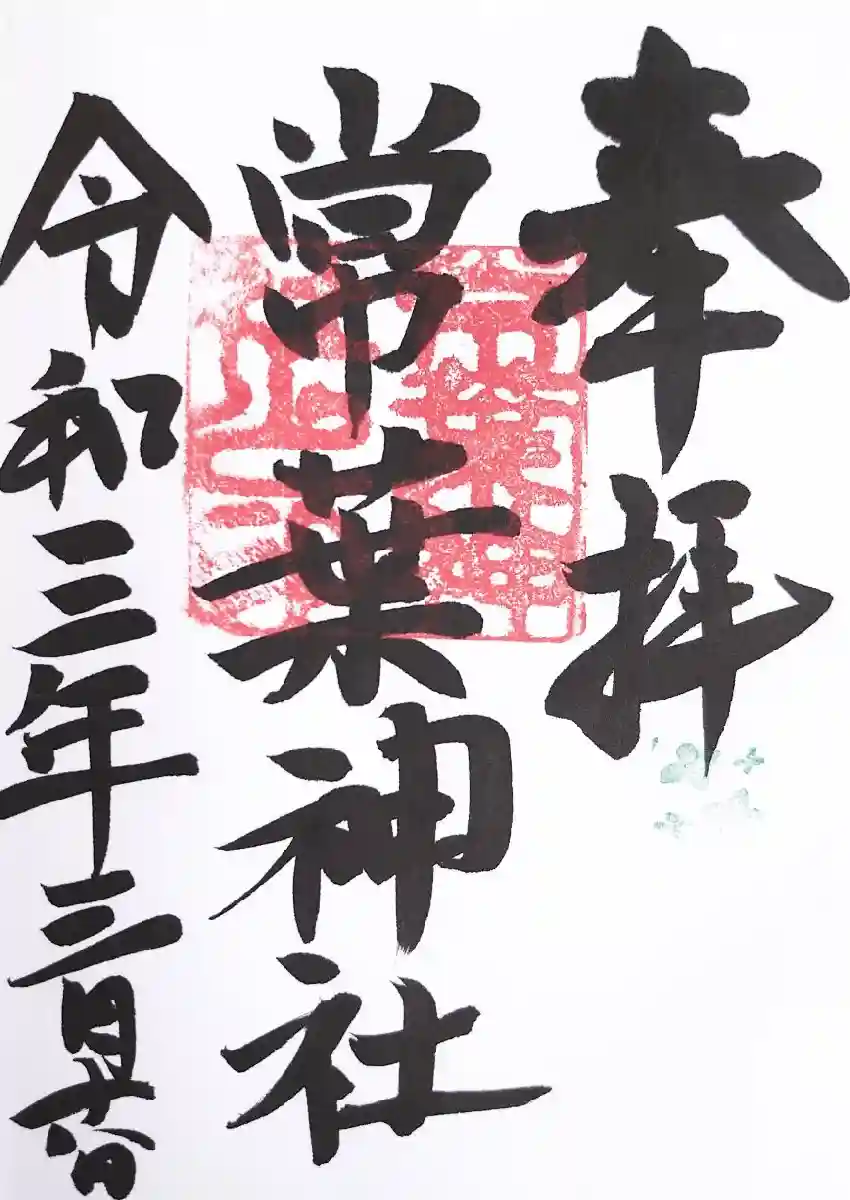 奉拝
常葉神社
令和三年三月日